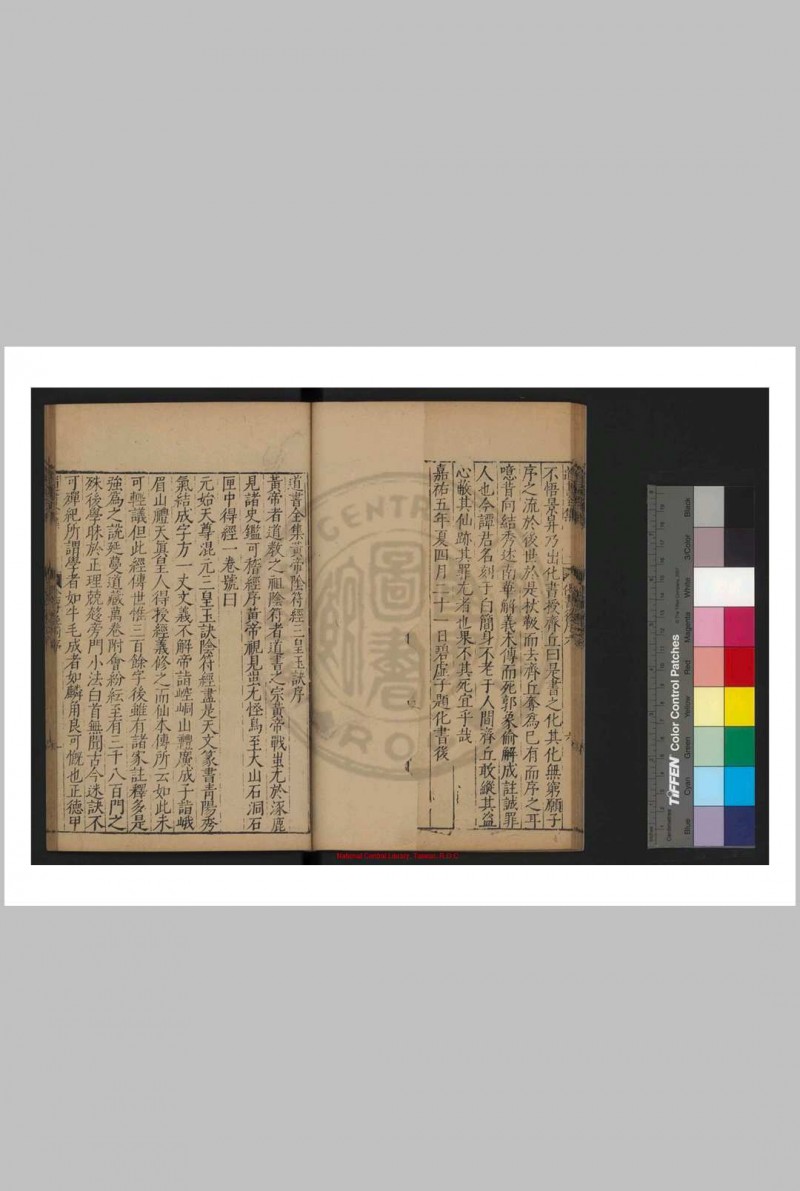 不悟景昇乃出化書授齊丘曰是書之化其化無窮願子
序之流於後世於是杖靸而去齊丘奪為己有而序之耳
噫昔向秀述南華解義未傳而死郭象偷解成註誠罪
人也今譚君名刻于白簡身不老于人間齊丘敢縱其盜
心蔽其仙跡其罪尤者也果不其死宜乎哉
嘉祐五年夏四月二十一日碧虛子題化書後
道書全集黃帝陰符經三皇玉訣序
黃帝者道教之祖陰符者道書之宗黃帝戰蚩尤於涿鹿
見諸史鑑可稽經序黃帝視見蚩尤怪鳥至大山石洞石
匣中得經一卷號曰
元始天尊混元三皇玉訣陰符經盡是天文篆書青陽秀
氣結成字方一丈文義不解帝詣崆峒山禮廣成子詣峨
眉山禮天真皇人得授經義修之而仙本傳所云如此未
可輕議但此經傳世惟三百餘字後雖有諸家註釋多是
強為之說延蔓道藏萬卷附會紛紜至有三千八百門之
殊後學昧於正理競趍旁門小法白首無聞古今迷訣不
可殫紀所謂學者如牛毛成者如麟角良可慨也正德甲
National Central Library, Taiwan, R.O.C
TIFFEN Color Control Patches
Blue
Cyan
Green
Yellow
Red
Magenta
White
3/Color
Black